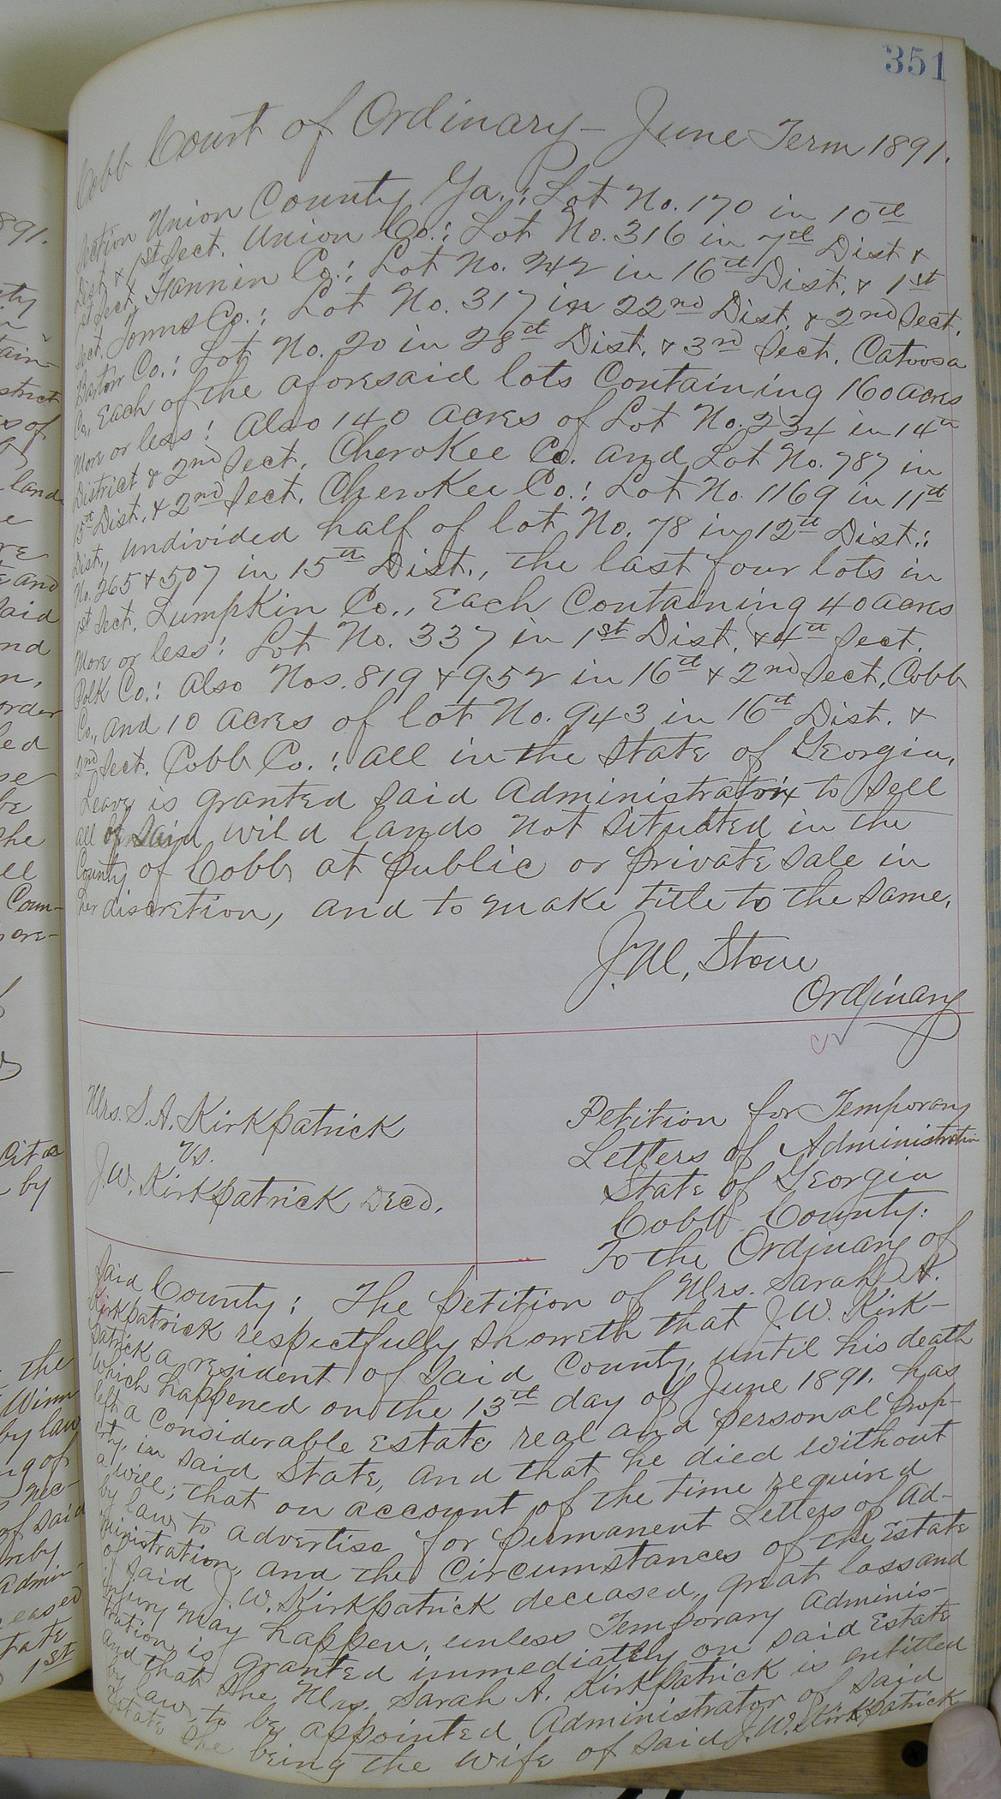 351
Cobb Court of Ordinary - June Term 1891.
Section Union County Ga.: Lot No. 170 in 10th
Dist & 1st Sect. Union Co.: Lot No. 316 in 7th Dist &
1st Sect. Fannin Co.: Lot No. 242 in 16th Dist. & 1st
Sect. Towns Co.: Lot No. 317 in 22nd Dist. & 2nd Sect.
Bartow Co.: Lot No. 20 in 28th Dist. & 3rd Sect. Catoosa
Co. Each of the aforesaid lots Containing 160 acres
More or less: also 140 acres of Lot No. 234 in 14th
District & 2nd Sect. Cherokee Co. and Lot No. 787 in
15th Dist. & 2nd Sect. Cherokee Co.: Lot No. 1169 in 11th
Dist., undivided half of lot No. 78 in 12th Dist.:
No. 365 & 507 in 15th Dist., the last four lots in
1st Sect. Lumpkin Co., Each Containing 40 acres
More or less: Lot No. 337 in 1st Dist. & 4th Sect.
Polk Co.: Also Nos. 819 & 952 in 16th & 2nd Sect. Cobb
Co., and 10 acres of lot No. 943 in 16th Dist. &
2nd Sect. Cobb Co.: all in the State of Georgia.
Leave is granted said Administratrix to sell
all of said wild lands not situated in the
County of Cobb at public or private sale in
her discretion, and to make title to the same.
J.M. Stone
Ordinary
Mrs. S. A. Kirkpatrick
vs.
J. W. Kirkpatrick Decd.
Petition for Temporary
Letters of Administration
State of Georgia
Cobb County:
To the Ordinary of
Said County: The petition of Mrs. Sarah A.
Kirkpatrick respectfully showeth that J. W. Kirk-
patrick a resident of Said County, until his death
which happened on the 13th day of June 1891. has
left a Considerable Estate real and personal prop-
erty in said State, and that he died without
a will; that on account of the time required
by law to advertise for permanent Letters of Ad-
ministration, and the Circumstances of the Estate
of said J. W. Kirkpatrick deceased, great loss and
injury may happen, unless Temporary Adminis-
tration is granted immediately on said Estate
and that she Mrs. Sarah A. Kirkpatrick is entitled
by law to be appointed Administrator of said
Estate She being the wife of said J. W. Kirkpatrick